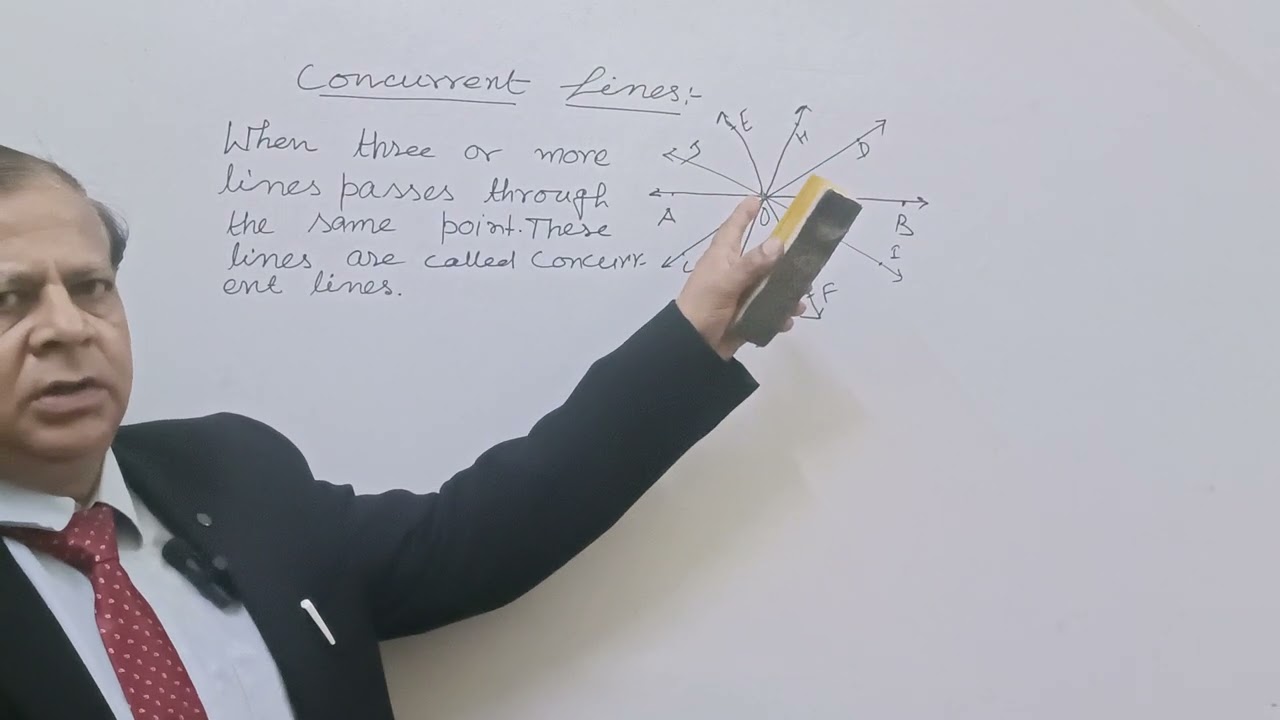 Concurrent Lines:-
When three or more
lines passes through
the same point. These
lines are called Concurr-
ent lines.
E
H
D
J
A
O
B
I
F